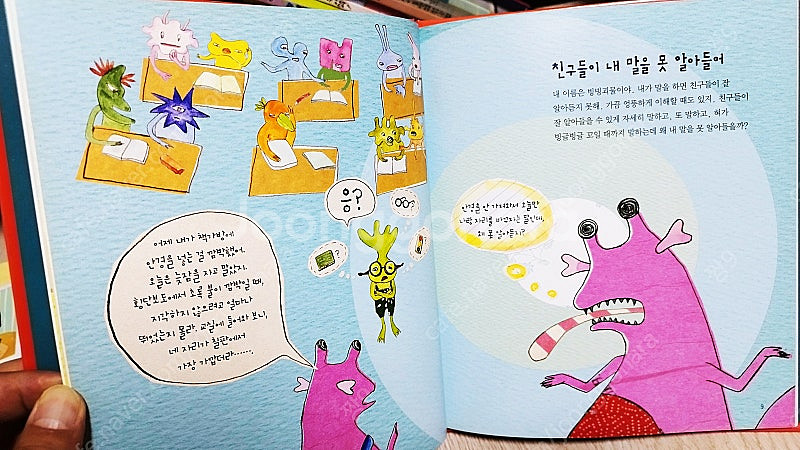 어제 내가 책가방에
안경을 넣는 걸 깜박했어.
오늘은 늦잠을 자고 말았지.
횡단보도에서 초록 불이 깜박일 때,
지각하지 않으려고 얼마나
뛰었는지 몰라. 교실에 들어와 보니,
네 자리가 칠판에서
가장 가깝더라……
응?
?
?
친구들이 내 말을 못 알아들어
내 이름은 빙빙괴물이야. 내가 말을 하면 친구들이 잘
알아듣지 못해. 가끔 엉뚱하게 이해할 때도 있지. 친구들이
잘 알아들을 수 있게 자세히 말하고, 또 말하고, 혀가
빙글빙글 꼬일 때까지 말하는데 왜 내 말을 못 알아들을까?
안경을 안 가져와서 오늘만
나랑 자리를 바꾸자는 말인데,
왜 못 알아듣지?
9